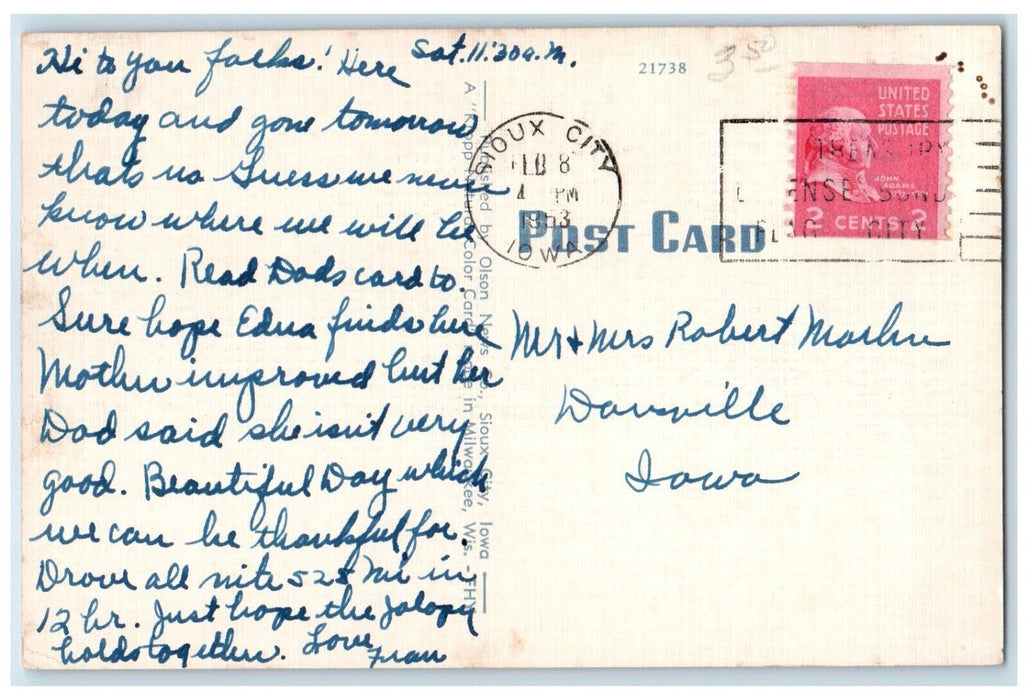 Sat. 11:30 a.m.
Hi to you folks! Here
today and gone tomorrow
thats us Guess we never
know where we will be
when. Read Dads card to.
Sure hope Edna finds here
Mother improved but her
Dad said she isn't very
good. Beautiful Day which
we can be thankful for.
Drove all nite 525 Mi in
12 hr. Just hope the Jalopy
holds together. Love
Fran
Published by Olson News Co., Sioux City, Iowa
A "Dropp Natural Color Card" Made in Milwaukee, Wis. - EHN
21738
3 50
SIOUX CITY
8
4 PM
1953
IOWA
UNITED
STATES
POSTAGE
JOHN
ADAMS
2 CENTS 2
POST CARD
Mr + Mrs Robert
Danville
Iowa